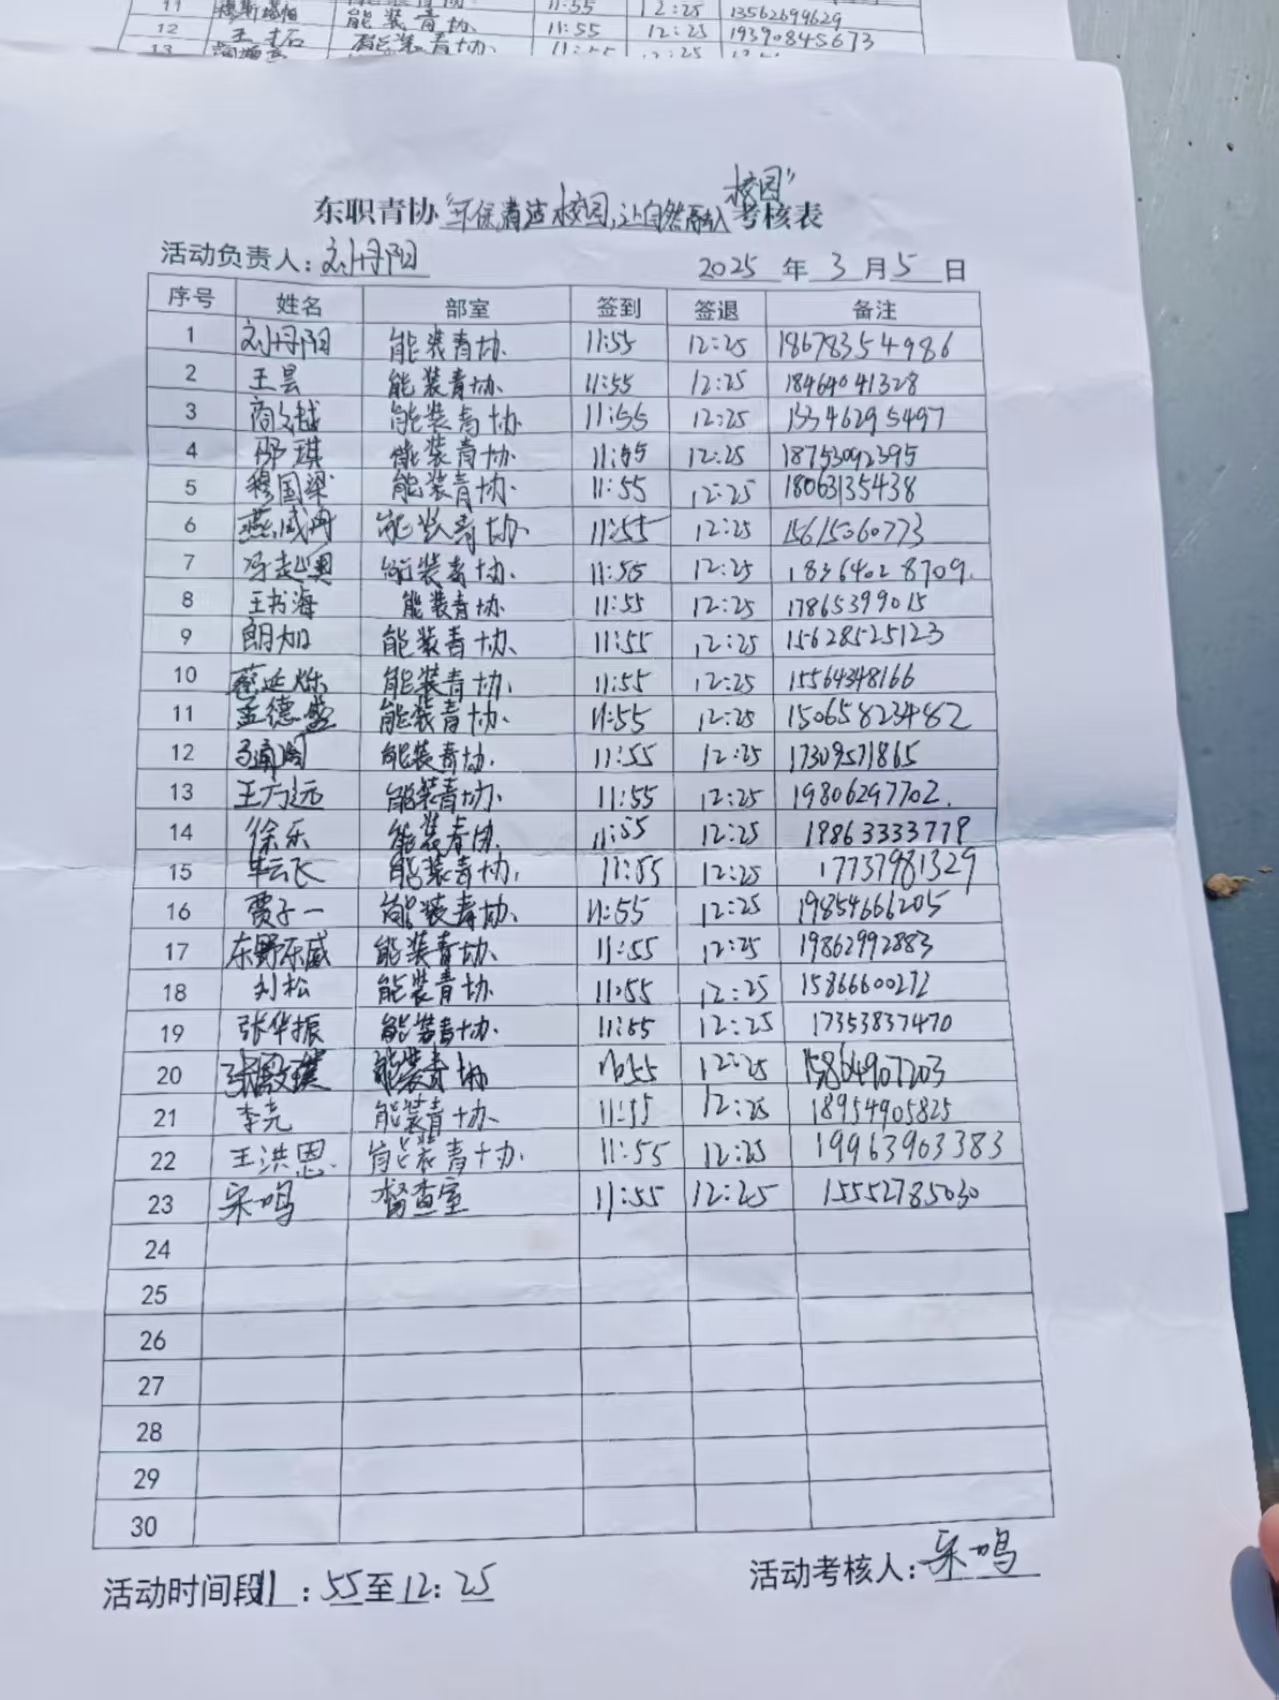 12 王才石 能装青协 11:55 12:25 19390845673
校园"
东职青协"环保清洁校园,让自然融入考核表
活动负责人:刘丹阳 2025年3月5日
序号 姓名 部室 签到 签退 备注
1 刘丹阳 能装青协 11:55 12:25 18678354986
2 王昙 能装青协 11:55 12:25 18464041328
3 商文越 能装青协 11:55 12:25 15346295497
4 邢琪 能装青协 11:55 12:25 18753092395
5 穆国梁 能装青协 11:55 12:25 18063135438
6 燕威冉 能装青协 11:55 12:25 15615060773
7 能装青协 11:55 12:25 18364028709
8 王书海 能装青协 11:55 12:25 17865399015
9 郎加 能装青协 11:55 12:25 15628525123
10 蔡延烁 能装青协 11:55 12:25 15564348166
11 孟德盛 能装青协 11:55 12:25 15065823482
12 能装青协 11:55 12:25 17309571865
13 王方远 能装青协 11:55 12:25 19806297702
14 徐乐 能装青协 11:55 12:25
15 牟云飞 能装青协 11:55 12:25 17737981329
16 贾子一 能装青协 11:55 12:25 19854666205
17 东野东威 能装青协 11:55 12:25 19862992883
18 刘松 能装青协 11:55 12:25 15866600272
19 张华振 能装青协 11:55 12:25 17353837470
20 能装青协 11:55 12:25 15864907203
21 李尧 能装青协 11:55 12:25 18954905825
22 王洪恩 能装青协 11:55 12:25 19963903383
23 宋鸣 督查室 11:55 12:25 15552785030
24
25
26
27
28
29
30
活动时间段11:55至12:25 活动考核人:宋鸣